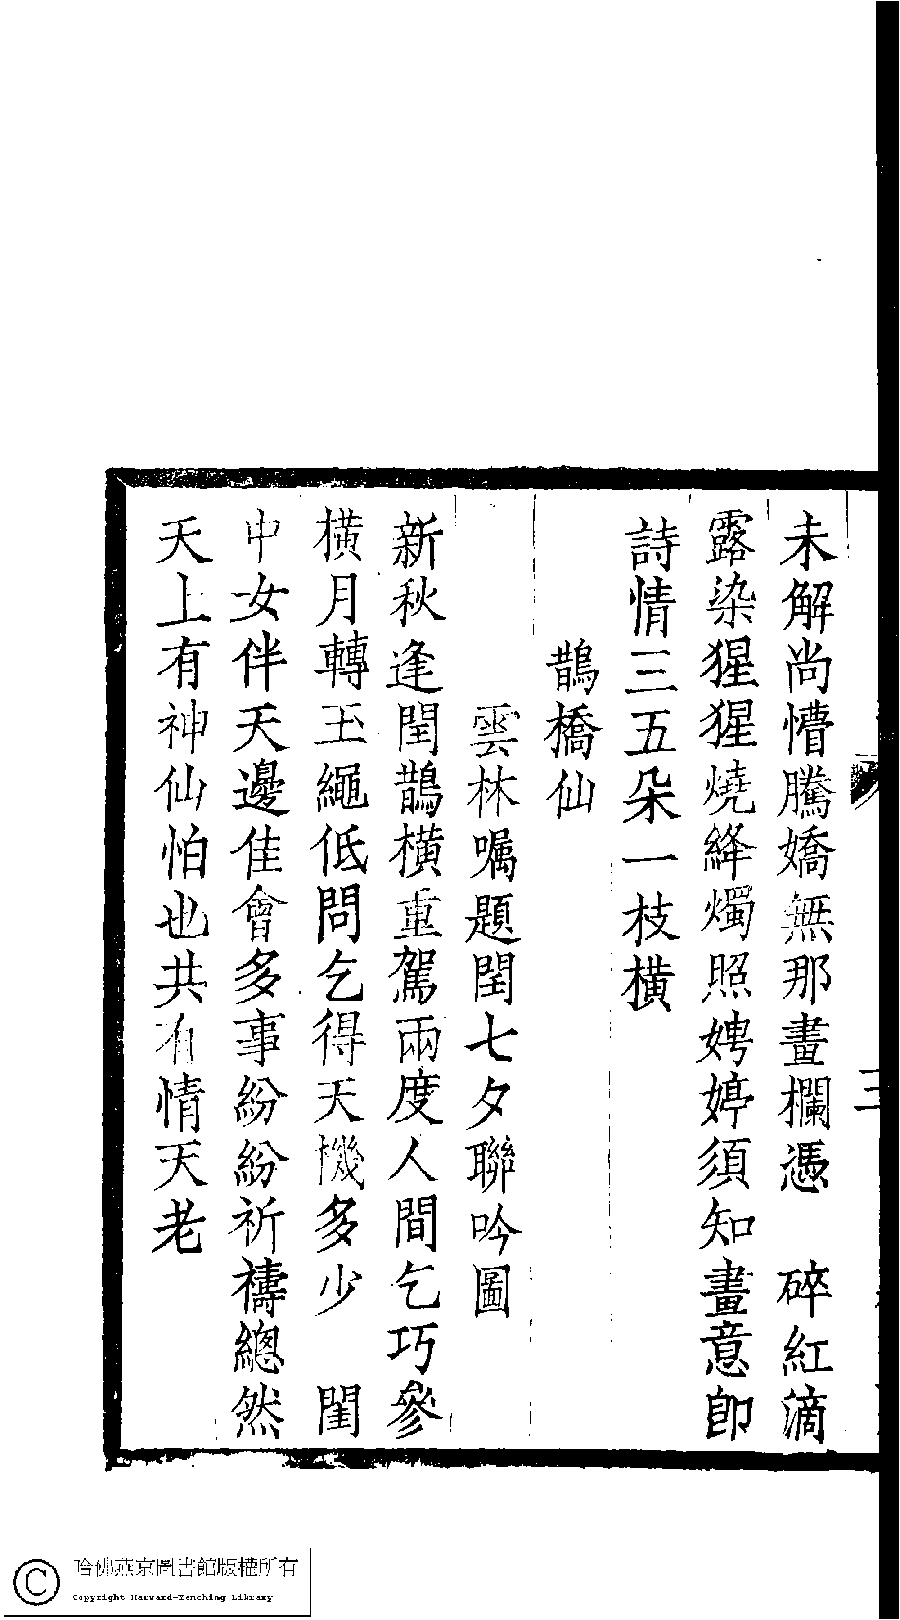 未解尚懵騰嬌無那畫欄憑　碎紅滴
露染猩猩燒絳燭照娉婷須知畫意卽
詩情三五朵一枝橫
鵲橋仙
雲林囑題閏七夕聯吟圖
新秋逢閏鵲橫重駕兩度人間乞巧參
橫月轉玉繩低問乞得天機多少　閨
中女伴天邊佳會多事紛紛祈禱總然
天上有神仙怕也共有情天老
三
哈佛燕京圖書館版權所有
Copyright Harvard-Yenching Library